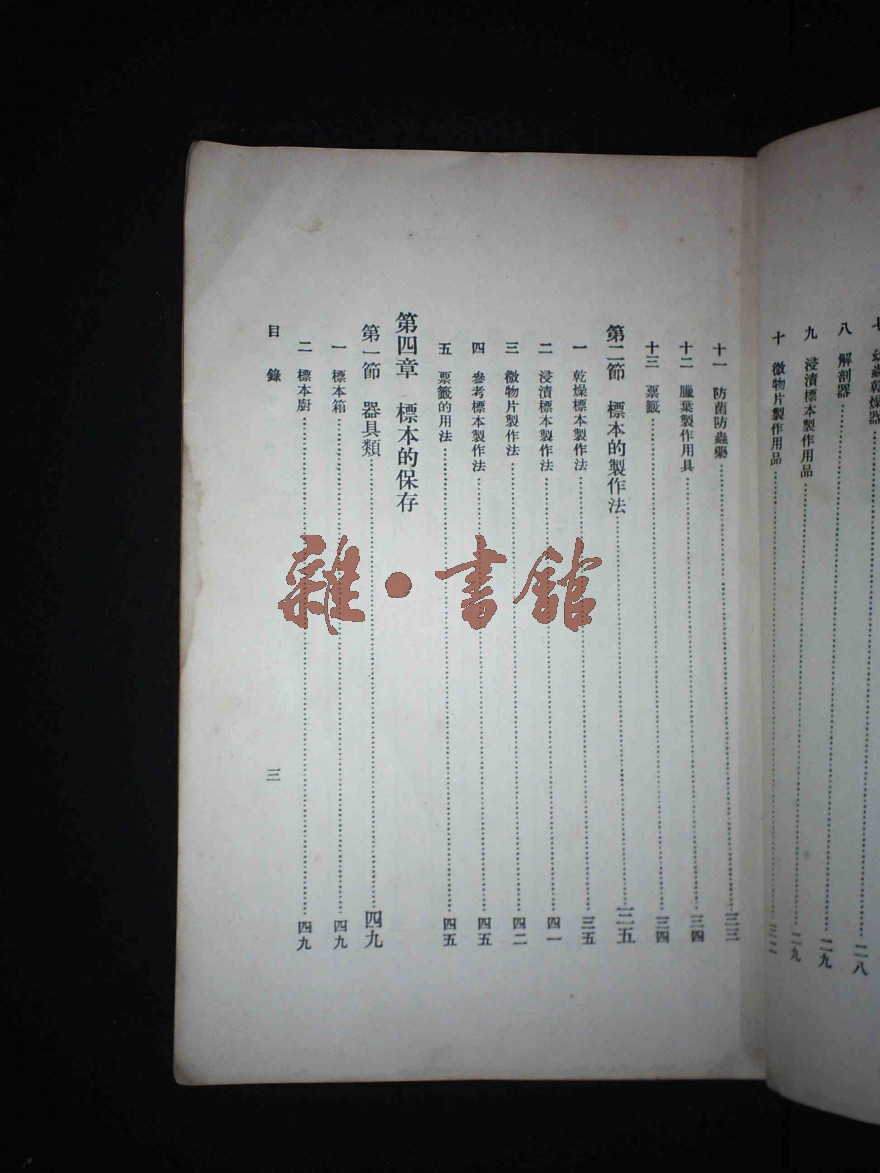 幼蟲乾燥器
八 解剖器……二八
九 浸漬標本製作用品……二九
十 微物片製作用品……三二
十一 防菌防蟲藥……三三
十二 腊葉製作用具……三四
十三 票籤……三四
第二節 標本的製作法……三五
一 乾燥標本製作法……三五
二 浸漬標本製作法……四一
三 微物片製作法……四二
四 參考標本製作法……四五
五 票籤的用法……四五
第四章 標本的保存
第一節 器具類……四九
一 標本箱……四九
二 標本廚……四九
目錄
三
雜·書館